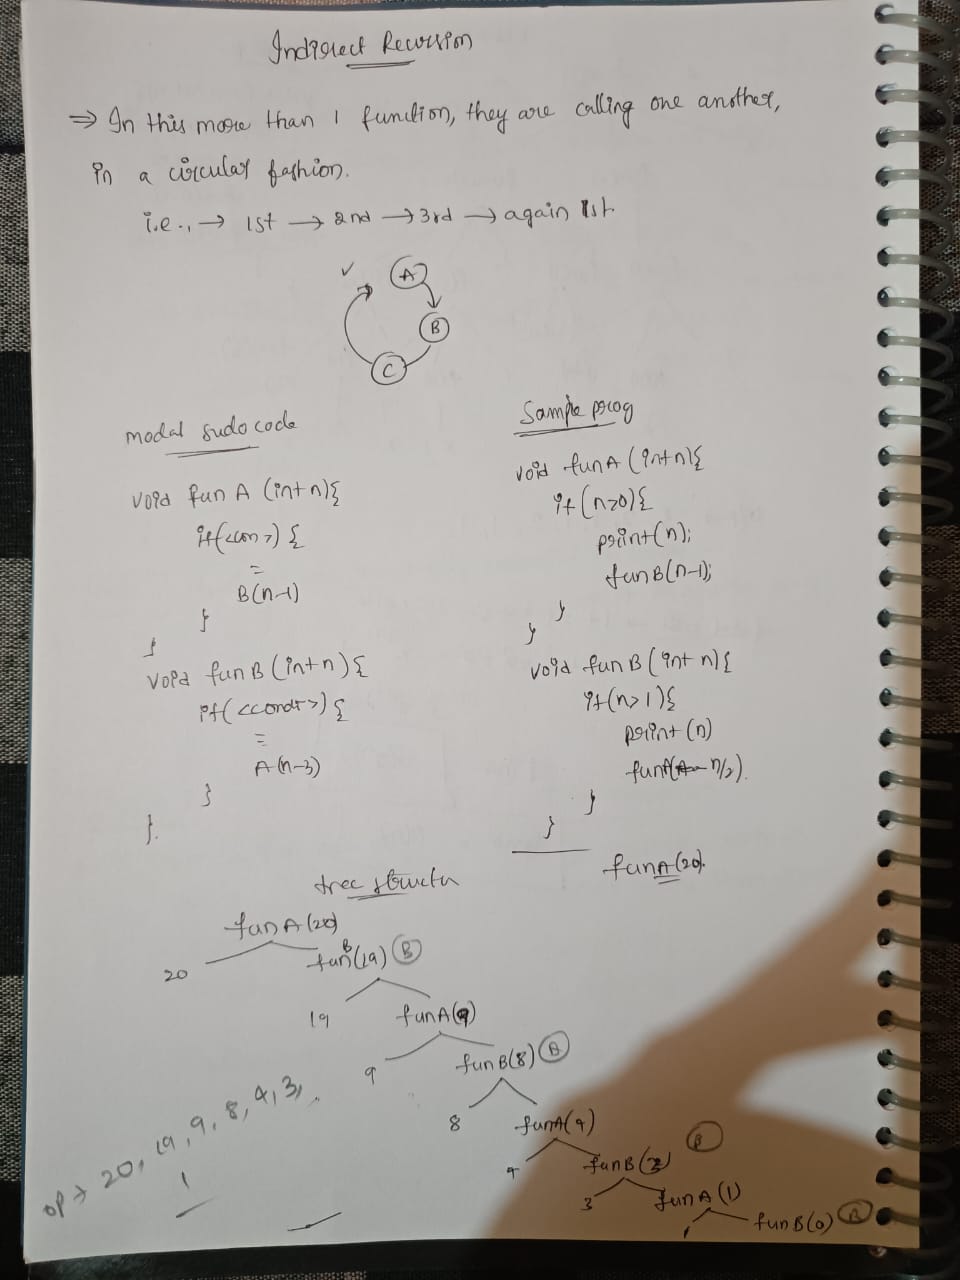 Indirect Recursion
⇒ In this more than 1 function, they are calling one another,
in a circular fashion.
i.e., → 1st → 2nd → 3rd → again 1st.
A
B
C
modal sudo code
void fun A (int n){
if(<con>) {
=
B(n-1)
}
}
void fun B (int n){
if(<condt>) {
=
A(n-3)
}
}.
Sample prog
void funA (int n){
if (n>0){
print(n);
funB(n-1);
}
}
void fun B (int n){
if(n>1){
print (n)
funA(n/2).
}
}
funA(20).
tree structu
funA(20)
20
funB(19) B
19
funA(9)
9
funB(8) B
8
funA(4)
4
funB(3) B
3
funA(1)
1
funB(0) B
op → 20, 19, 9, 8, 4, 3,
1